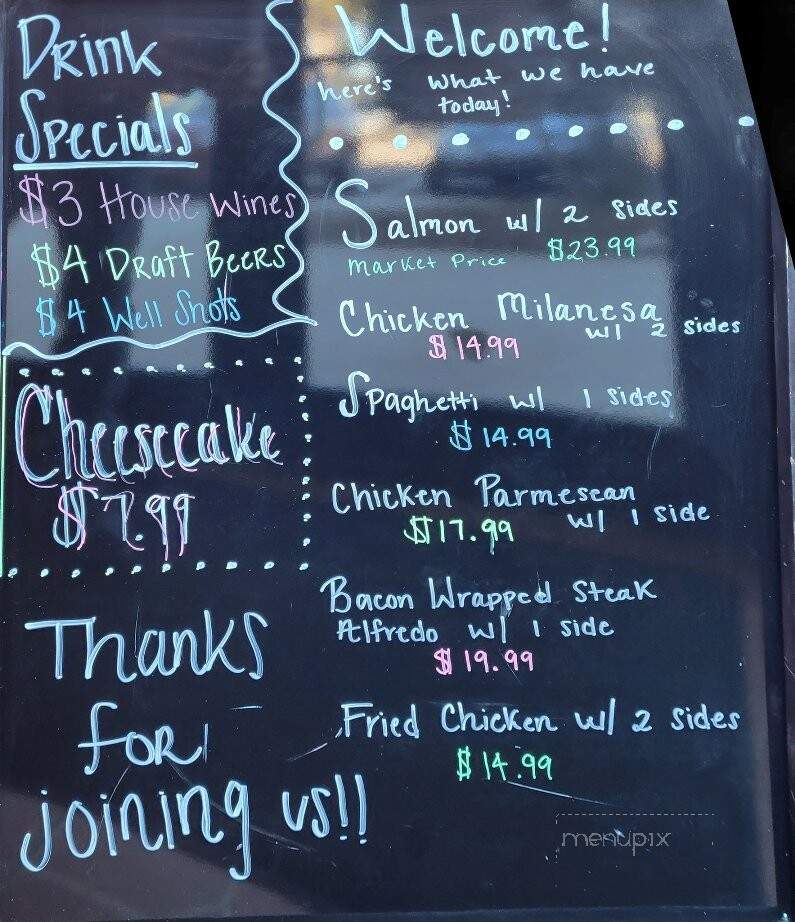 Drink
Specials
$3 House Wines
$4 Draft Beers
$4 Well Shots
Cheesecake
$7.99
Thanks
for
joining us!!
Welcome!
here's what we have
today!
Salmon w/ 2 sides
Market Price $23.99
Chicken Milanesa
w/ 2 sides
$14.99
Spaghetti w/ 1 sides
$14.99
Chicken Parmesean
$17.99 w/ 1 side
Bacon Wrapped Steak
Alfredo w/ 1 side
$19.99
Fried Chicken w/ 2 sides
$14.99
menupix